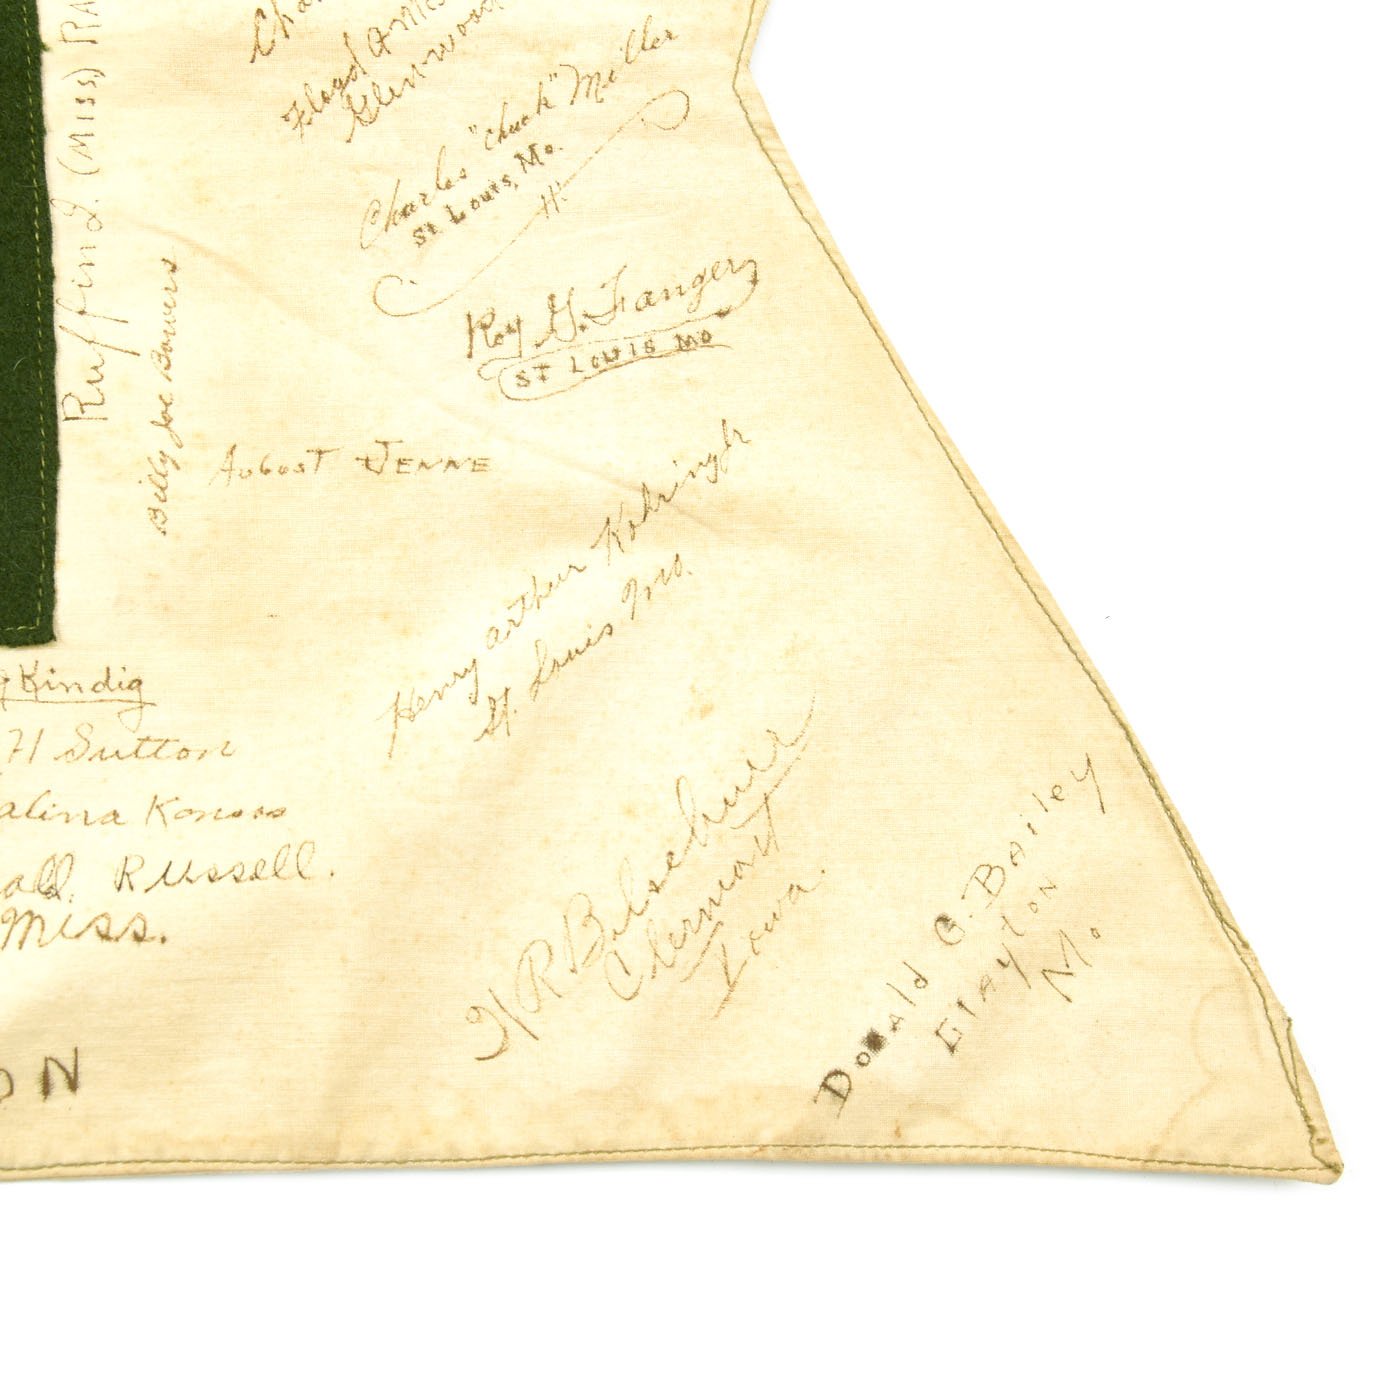 Floyd
Glenwood
Charles "Chuck" Miller
St Louis, Mo.
Roy G. Fanger
ST LOUIS MO
Ruffin J. (MISS) RA
Billy Joe Bowers
AUGUST JENNE
Henry arthur Kohring Jr
St. Louis Mo.
Kindig
H Sutton
alina Kansas
ald. Russell.
Miss.
H R Belschner
Clermont
Iowa.
Donald G. Bailey
Clayton
Mo
ON